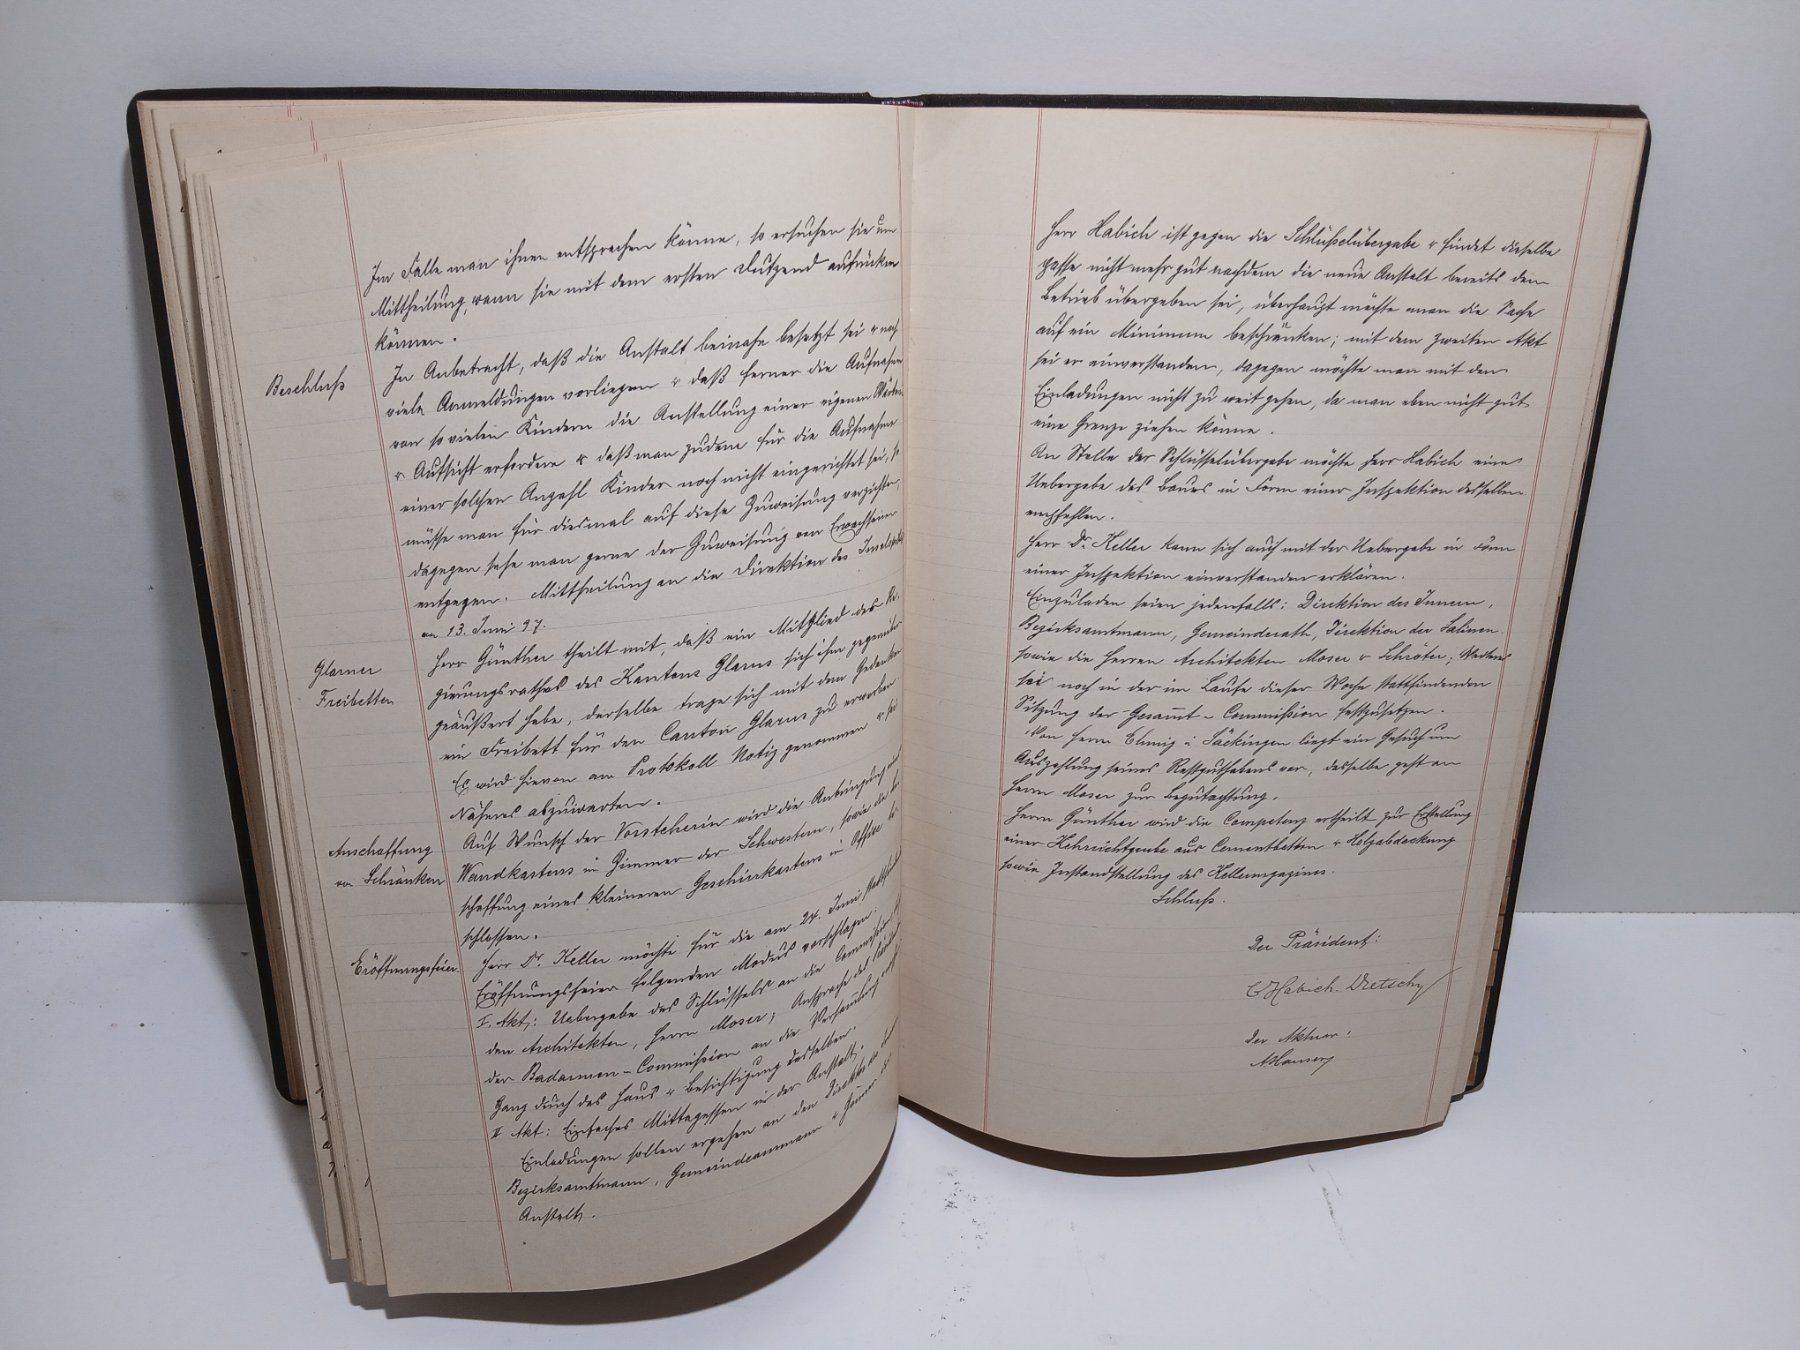 Im Falle man ihnen entsprechen könne, so ersuchen sie um
Mittheilung, wann sie mit dem ersten Dutzend aufrücken
können.
Beschluß
In Anbetracht, daß die Anstalt beinahe besetzt sei & noch
viele Anmeldungen vorliegen & daß ferner die Aufnahme
von so vielen Kindern die Anstellung einer eigenen
& Aufsicht erfordere & daß man zudem für die Aufnahme
einer solchen Anzahl Kinder noch nicht eingerichtet sei, so
müsse man für diesmal auf diese Zuweisung verzichten,
dagegen sehe man gerne der Zuweisung von Erwachsenen
entgegen. Mittheilung an die Direktion des
am 13. Juni 97.
Glarner
Freibetten
Herr Günther theilt mit, daß ein Mitglied des Re-
gierungsrathes des Kantons Glarus sich ihm gegenüber
geäußert habe, derselbe trage sich mit dem Gedanken
ein Freibett für den Canton Glarus zu erwerben
Es wird hievon am Protokoll Notiz genommen & sei
Näheres abzuwarten.
Anschaffung
von Schränken
Auf Wunsch der Vorsteherin wird die Anbringung eines
Wandkastens im Zimmer der Schwestern, sowie die An-
schaffung eines kleineren Geschirrkastens im Office be-
schlossen.
Eröffnungsfeier
Herr Dr. Keller möchte für die am 24. Juni
Eröffnungsfeier folgenden Modus vorschlagen:
I. Akt: Uebergabe des Schlüssels an die Commission
den Architekten, Herrn Moser; Ansprache des
der Badarmen-Commission an die Versammlung
Gang durch das Haus & Besichtigung desselben.
II Akt: Einfaches Mittagessen in der Anstalt.
Einladungen sollen ergehen an den Direktor
Bezirksamtmann, Gemeindeammann &
Anstalt.
Herr Habich ist gegen die Schlüßelübergabe & findet dieselbe
passe nicht mehr gut nachdem die neue Anstalt bereits dem
Betrieb übergeben sei, überhaupt möchte man die Sache
auf ein Minimum beschränken; mit dem zweiten Akt
sei er einverstanden, dagegen möchte man mit den
Einladungen nicht zu weit gehen, da man eben nicht gut
eine Grenze ziehen könne.
An Stelle der Schlüsselübergabe möchte Herr Habich eine
Uebergabe des Baues in Form einer Inspektion desselben
empfehlen.
Herr Dr. Keller kann sich auch mit der Uebergabe in Form
einer Inspektion einverstanden erklären.
Einzuladen seien jedenfalls: Direktion des Innern,
Bezirksamtmann, Gemeinderath, Direktion der Salinen
sowie die Herren Architekten Moser & Schröter; Weiteres
sei noch in der im Laufe dieser Woche stattfindenden
Sitzung der Gesammt-Commißion festzusetzen.
Von Herrn in Säckingen liegt ein Gesuch um
Auszahlung seines Restguthabens vor, dasselbe geht an
Herrn Moser zur Begutachtung.
Herrn Günther wird die Competenz ertheilt zur Erstellung
einer Kehrichtgrube aus Cementbetton & Holzabdeckung
sowie Instandstellung des Kellermagazines.
Schluß.
Der Präsident:
C Habich-Dietschy
Der Aktuar: